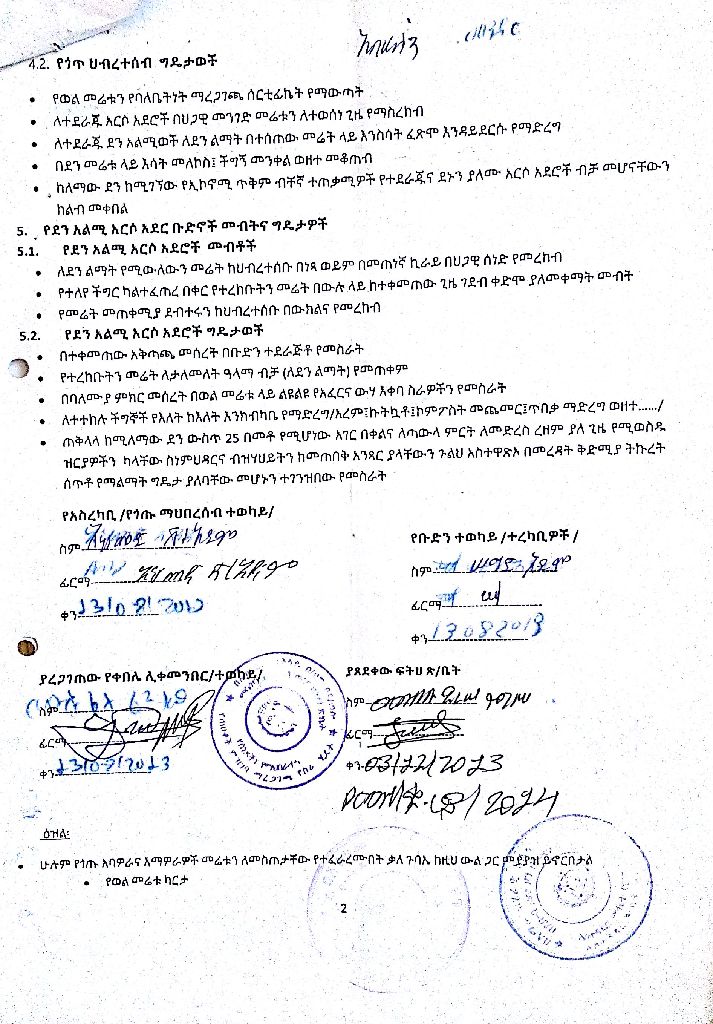 4.2. የጎጥ ህብረተሰብ ግዴታወች
• የወል መሬቱን የባለቤትነት ማረጋገጫ ሰርቲፊኬት የማውጣት
• ለተደራጁ አርሶ አደሮች በህጋዊ መንገድ መሬቱን ለተወሰነ ጊዜ የማስረከብ
• ለተደራጁ ደን አልሚወች ለደን ልማት በተሰጠው መሬት ላይ እንስሳት ፈጽሞ እንዳይደርሱ የማድረግ
• በደን መሬቱ ላይ እሳት መለኮስ፤ ችግኝ መንቀል ወዘተ መቆጠብ
• ከለማው ደን ከሚገኘው የኢኮኖሚ ጥቅም ብቸኛ ተጠቃሚዎች የተደራጁና ደኑን ያለሙ አርሶ አደሮች ብቻ መሆናቸውን
ከልብ መቀበል
5. የደን አልሚ አርሶ አደር ቡድኖች መብትና ግዴታዎች
5.1. የደን አልሚ አርሶ አደሮች መብቶች
• ለደን ልማት የሚውለውን መሬት ከህብረተሰቡ በነጻ ወይም በመጠነኛ ኪራይ በህጋዊ ሰነድ የመረከብ
• የተለየ ችግር ካልተፈጠረ በቀር የተረከቡትን መሬት በውሉ ላይ ከተቀመጠው ጊዜ ገደብ ቀድሞ ያለመቀማት መብት
• የመሬት መጠቀሚያ ደብተሩን ከህብረተሰቡ በውክልና የመረከብ
5.2. የደን አልሚ አርሶ አደሮች ግዴታወች
• በተቀመጠው አቅጣጫ መሰረት በቡድን ተደራጅቶ የመስራት
• የተረከቡትን መሬት ለታለመለት ዓላማ ብቻ (ለደን ልማት) የመጠቀም
• በባለሙያ ምክር መሰረት በወል መሬቱ ላይ ልዩልዩ የአፈርና ውሃ እቀባ ስራዎችን የመስራት
• ለተተከሉ ችግኞች የእለት ከእለት እንክብካቤ የማድረግ/አረም፤ኩትኳቶ፤ኮምፖስት መጨመር፤ጥበቃ ማድረግ ወዘተ....../
• ጠቅላላ ከሚለማው ደን ውስጥ 25 በመቶ የሚሆነው አገር በቀልና ለጣውላ ምርት ለመድረስ ረዘም ያለ ጊዜ የሚወስዱ
ዝርያዎችን ካላቸው ስነምህዳርና ብዝሃህይትን ከመጠበቅ አንጻር ያላቸውን ጉልህ አስተዋጽኦ በመረዳት ቅድሚያ ትኩረት
ሰጥቶ የማልማት ግዴታ ያለባቸው መሆኑን ተገንዝበው የመስራት
የአስረካቢ /የጎጡ ማህበረሰብ ተወካይ/
የቡድን ተወካይ /ተረካቢዎች /
ስም
ስም
ፊርማ
ፊርማ
ቀን 13/08/2013
ቀን 13/08/2013
ያረጋገጠው የቀበሌ ሊቀመንበር/ተወካይ/
ያጸደቀው ፍትህ ጽ/ቤት
ስም
ስም
ፊርማ
ፊርማ
ቀን 13/08/2013
ቀን 03/12/2013
ዕዝል:
• ሁሉም የጎጡ አባዎራና እማዎራዎች መሬቱን ለመስጠታቸው የተፈራረሙበት ቃለ ጉባኤ ከዚህ ውል ጋር ምያያዝ ይኖርበታል
• የወል መሬቱ ካርታ
2